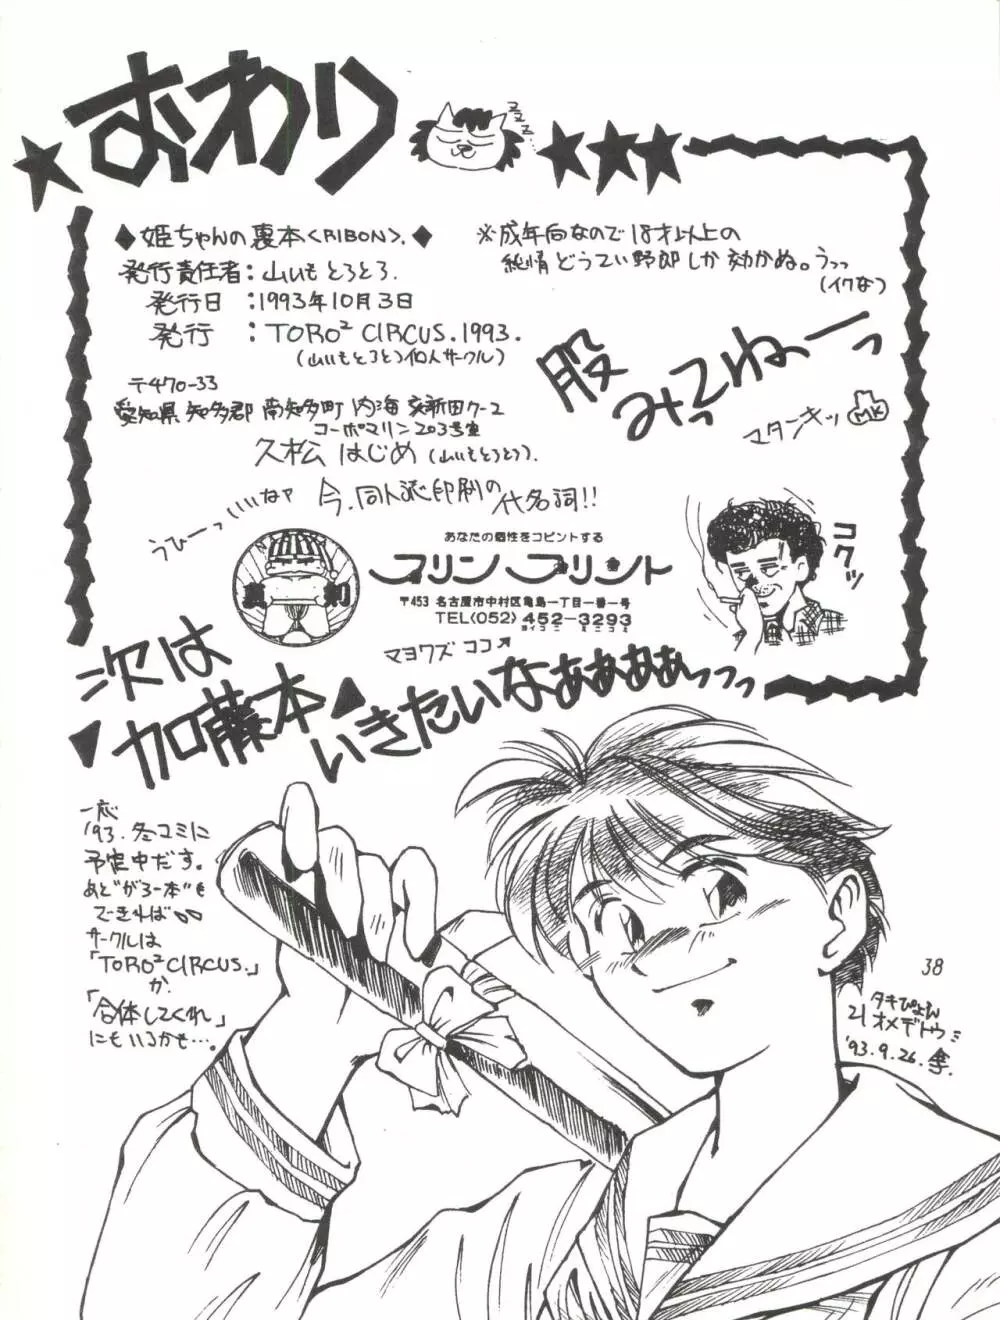 おわり
zzz
◆姫ちゃんの裏本<RIBON>.◆
発行責任者:山いもとろとろ.
発行日:1993年10月3日
発行:TORO² CIRCUS.1993.
(山いもとろとろ個人サークル)
〒470-33
愛知県知多郡南知多町内海
コーポマリン203号室
久松はじめ(山いもとろとろ).
※成年向なので18才以上の
純情どうてい野郎しか効かぬ。うっっ
(イクな)
股
みってねーっ
マタンキッ
MK
うひーっ いいなァ
今.同人派印刷の
代名詞!!
あなたの個性をコピントする
プリンプリント
〒453 名古屋市中村区亀島一丁目一番一号
TEL(052)452-3293
マヨワズココ↗
コクッ
次は
加藤本
いきたいなぁぁぁぁぁっっっ
一応
'93.冬コミに
予定中だす。
あと"がろー本"も
できれば
サークルは
「TORO² CIRCUS.」
か、
「合体してくれ」
にもいるかも…。
38
タキぴょん
21オメデトウミ
'93.9.26.